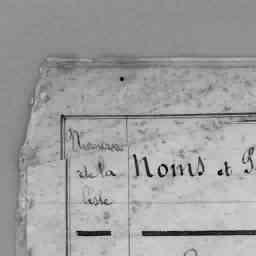 Numéros
de la
liste
Noms et P